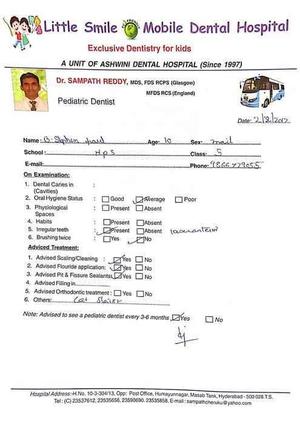 Little Smile Mobile Dental Hospital
Exclusive Dentistry for kids
A UNIT OF ASHWINI DENTAL HOSPITAL (Since 1997)
Dr. SAMPATH REDDY, MDS, FDS RCPS (Glasgow)
MFDS RCS (England)
Pediatric Dentist
Date: 2/8/2012
Name: B. Stephen Age: 10 Sex: mail
School: HPS Class: 5
E-mail Phone:
On Examination:
1. Dental Caries in (Cavities)
2. Oral Hygiene Status : Good Average Poor
3. Physiological Spaces : Present Absent
4. Habits : Present Absent
5. Irregular teeth : Present Absent
6. Brushing twice : Yes No
Adviced Treatment:
1. Advised Scaling/Cleaning : Yes No
2. Advised Flouride application: Yes No
3. Advised Pit & Fissure Sealants: Yes No
4. Advised Filling in
5. Advised Orthodontic treatment : Yes No
6. Others:
Note: Advised to see a pediatric dentist every 3-6 months Yes No
Hospital Address: H.No. 10-3-304/13, Opp: Post Office, Humayunnagar, Masab Tank, Hyderabad - 500 028 T.S.
Tel: (C) 23537612, 23535656, 23590690, 23535858. E-mail : sampathchenuku@yahoo.com